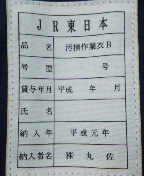 JR東日本
品名 汚損作業衣B
号型 号
貸与年月 平成 年 月
氏名
納入年 平成元年
納入者名 ㈱丸佐